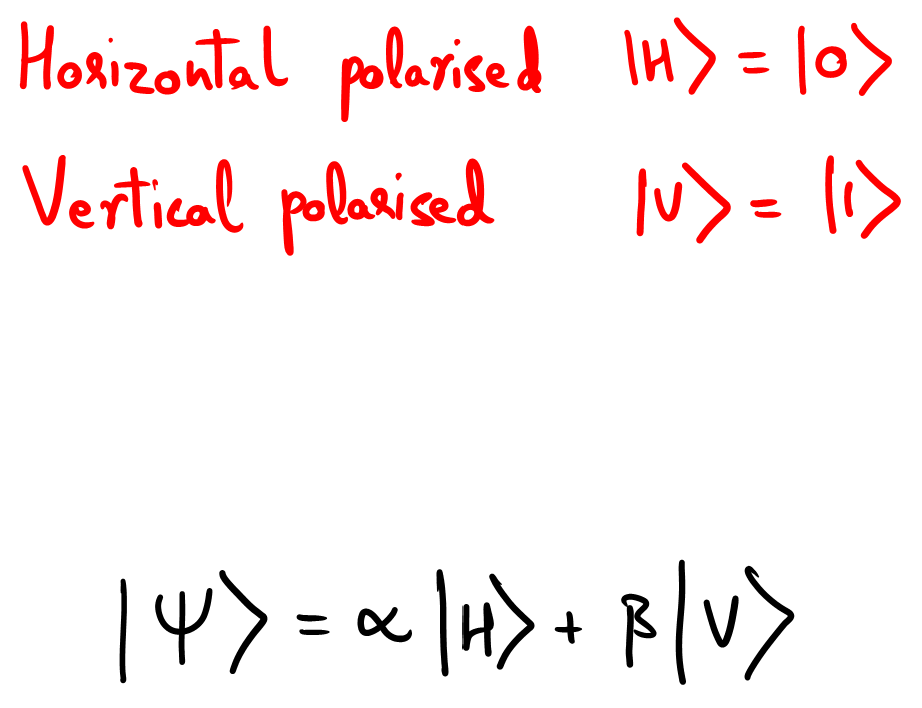 Horizontal polarised |H⟩ = |0⟩
Vertical polarised |V⟩ = |1⟩
|Ψ⟩ = α|H⟩ + β|V⟩